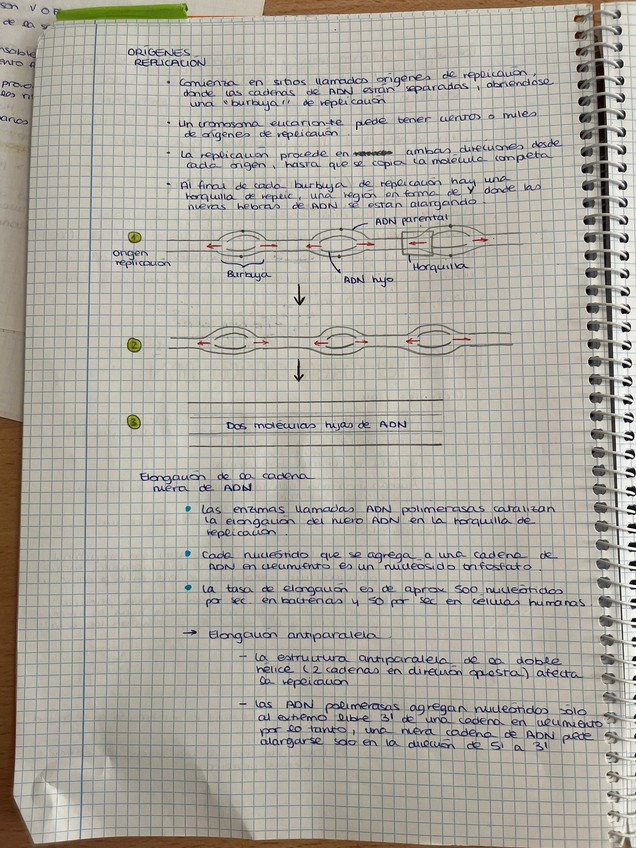 son V o F
de la v
nsable
ento
proo
los n
banos
ORÍGENES
REPLICACIÓN
• Comienza en sitios llamados orígenes de replicación,
donde las cadenas de ADN están separadas, abriéndose
una "burbuja" de replicación
• Un cromosoma eucarionte puede tener cientos o miles
de orígenes de replicación
• La replicación procede en ambas direcciones desde
cada origen, hasta que se copia la molécula completa
• Al final de cada burbuja de replicación hay una
horquilla de replic, una región en forma de Y donde las
nuevas hebras de ADN se están alargando
ADN parental
1
origen
replicación
Burbuja
ADN hijo
Horquilla
2
3
Dos moléculas hijas de ADN
Elongación de la cadena
nueva de ADN
• Las enzimas llamadas ADN polimerasas catalizan
la elongación del nuevo ADN en la horquilla de
replicación.
• Cada nucleótido que se agrega a una cadena de
ADN en crecimiento es un nucleósido trifosfato
• La tasa de elongación es de aprox 500 nucleótidos
por sec en bacterias y 50 por sec en células humanas.
→ Elongación antiparalela
- La estructura antiparalela de la doble
hélice (2 cadenas en dirección opuesta) afecta
la replicación
- Las ADN polimerasas agregan nucleótidos sólo
al extremo libre 3' de una cadena en crecimiento
por lo tanto, una nueva cadena de ADN puede
alargarse solo en la dirección de 5' a 3'